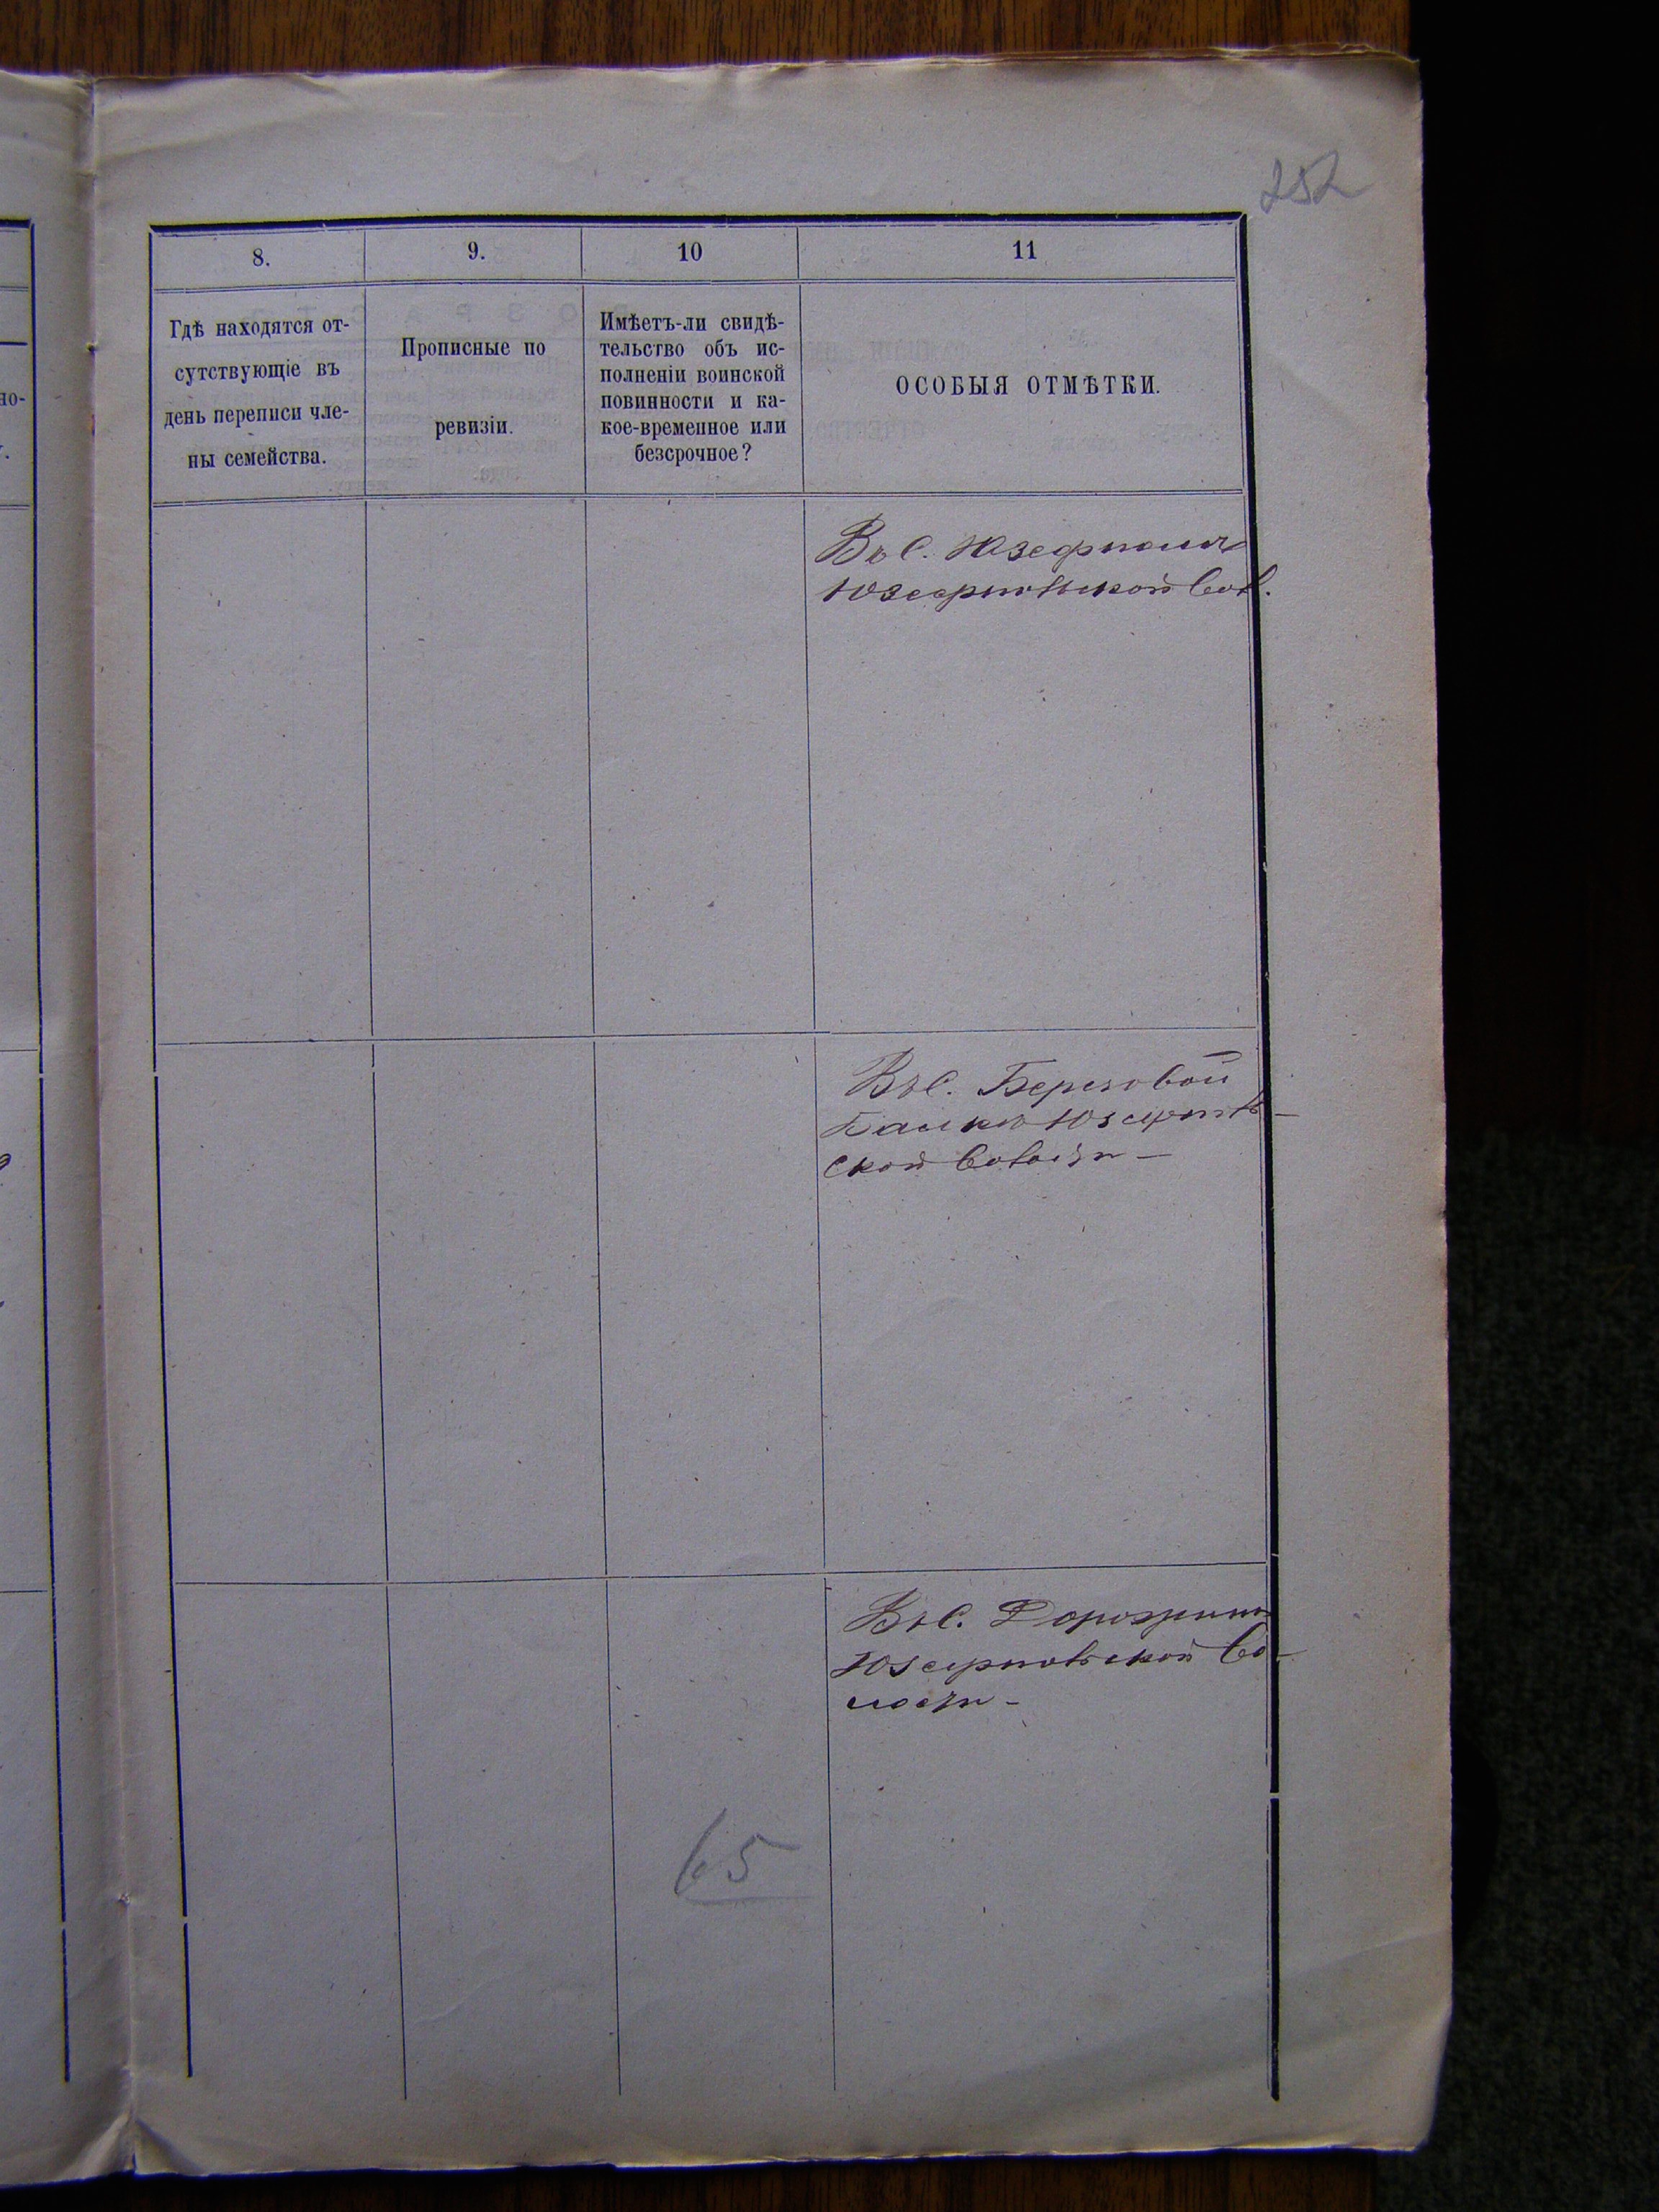 252
8.
9.
10
11
Гдѣ находятся от-
сутствующіе въ
день переписи чле-
ны семейства.
Прописные по
ревизіи.
Имѣетъ-ли свидѣ-
тельство объ ис-
полненіи воинской
повинности и ка-
кое-временное или
безсрочное?
ОСОБЫЯ ОТМѢТКИ.
но-
Въ С. Юзефполи
Юзефпольской вол.
Въ С. Березовой
Балки Юзефполь-
ской волости —
Въ С.
Юзефпольской во-
лости —
65